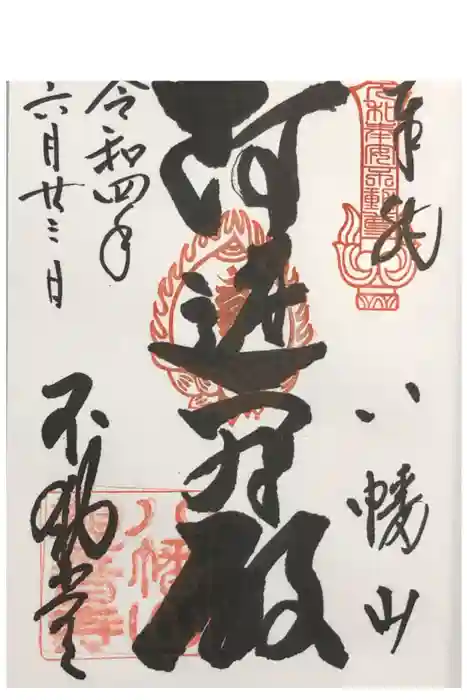 奉拝
八幡山
阿遮羅殿
令和四年
六月廿三日
不動堂